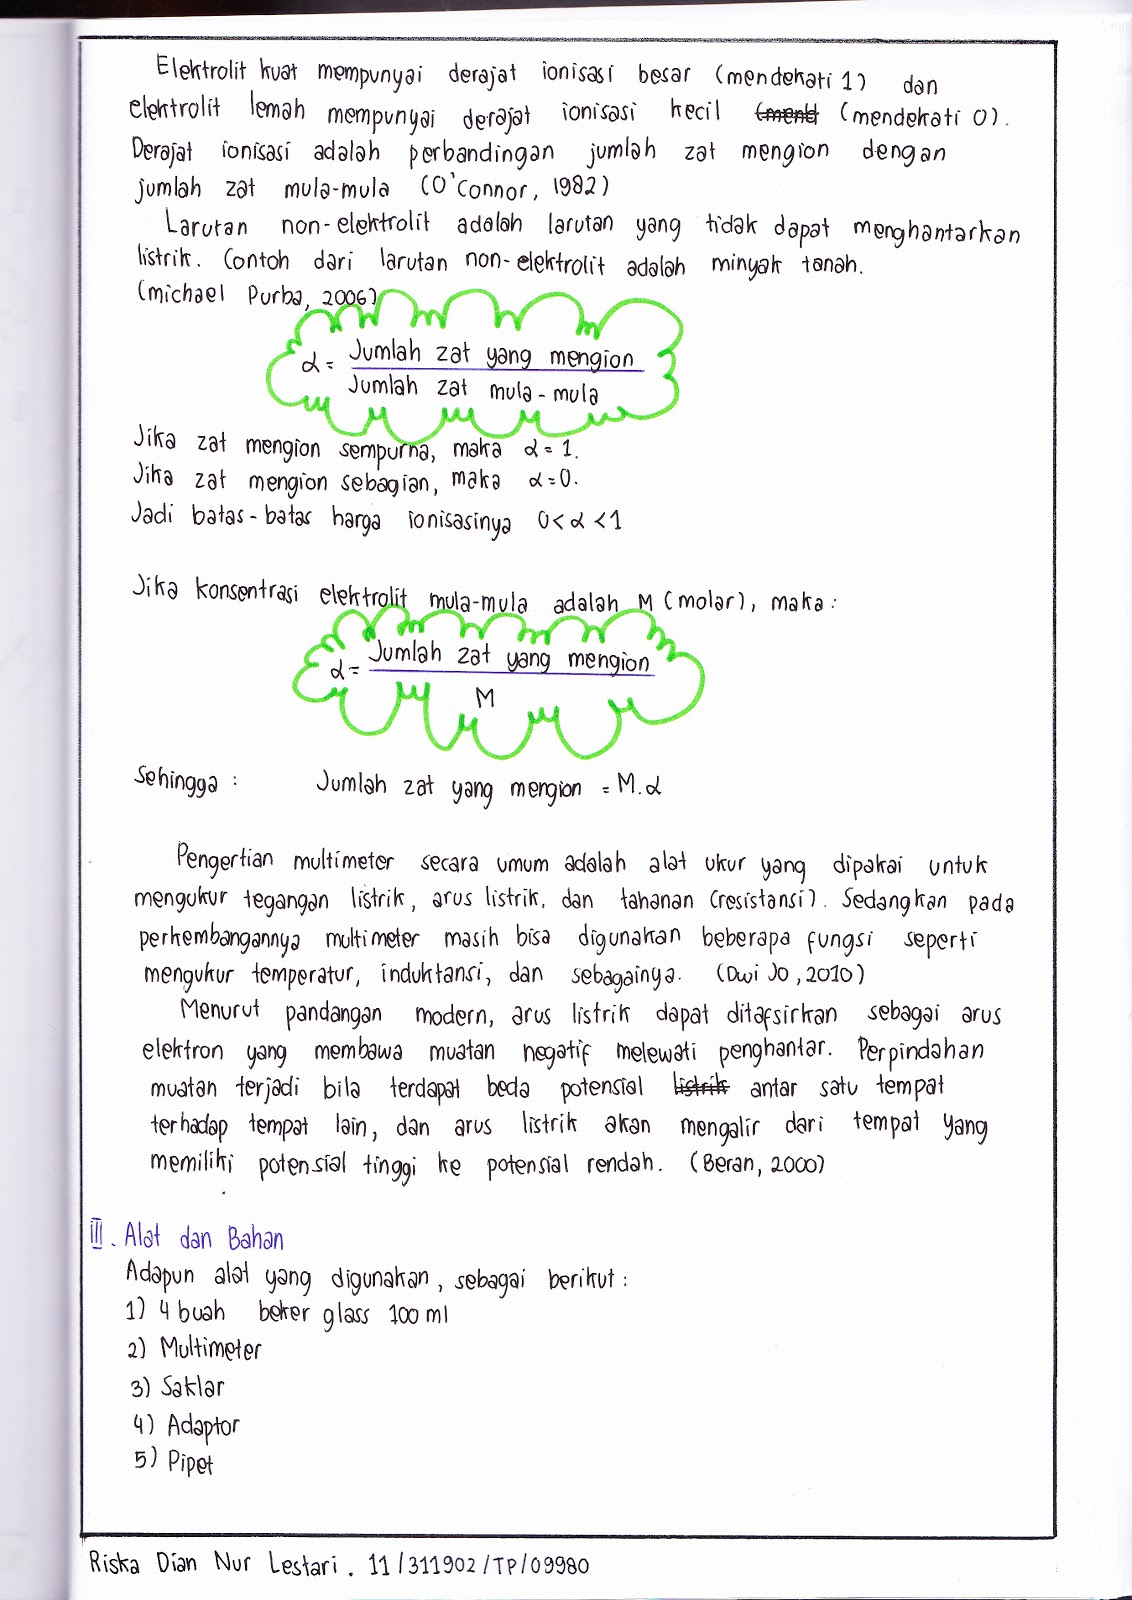 Elektrolit kuat mempunyai derajat ionisasi besar (mendekati 1) dan
elektrolit lemah mempunyai derajat ionisasi kecil (mend (mendekati 0).
Derajat ionisasi adalah perbandingan jumlah zat mengion dengan
jumlah zat mula-mula (O'Connor, 1982)
Larutan non-elektrolit adalah larutan yang tidak dapat menghantarkan
listrik. Contoh dari larutan non-elektrolit adalah minyak tanah.
(michael Purba, 2006)
α = Jumlah zat yang mengion
Jumlah zat mula-mula
Jika zat mengion sempurna, maka α = 1.
Jika zat mengion sebagian, maka α=0.
Jadi batas-batas harga ionisasinya 0<α<1
Jika konsentrasi elektrolit mula-mula adalah M (molar), maka:
α = Jumlah zat yang mengion
M
Sehingga : Jumlah zat yang mengion = M.α
Pengertian multimeter secara umum adalah alat ukur yang dipakai untuk
mengukur tegangan listrik, arus listrik, dan tahanan (resistansi). Sedangkan pada
perkembangannya multimeter masih bisa digunakan beberapa fungsi seperti
mengukur temperatur, induktansi, dan sebagainya. (Dwi Jo, 2010)
Menurut pandangan modern, arus listrik dapat ditafsirkan sebagai arus
elektron yang membawa muatan negatif melewati penghantar. Perpindahan
muatan terjadi bila terdapat beda potensial listrik antar satu tempat
terhadap tempat lain, dan arus listrik akan mengalir dari tempat yang
memiliki potensial tinggi ke potensial rendah. (Beran, 2000)
III. Alat dan Bahan
Adapun alat yang digunakan, sebagai berikut :
1) 4 buah beker glass 100 ml
2) Multimeter
3) Saklar
4) Adaptor
5) Pipet
Riska Dian Nur Lestari. 11/311902/TP/09980